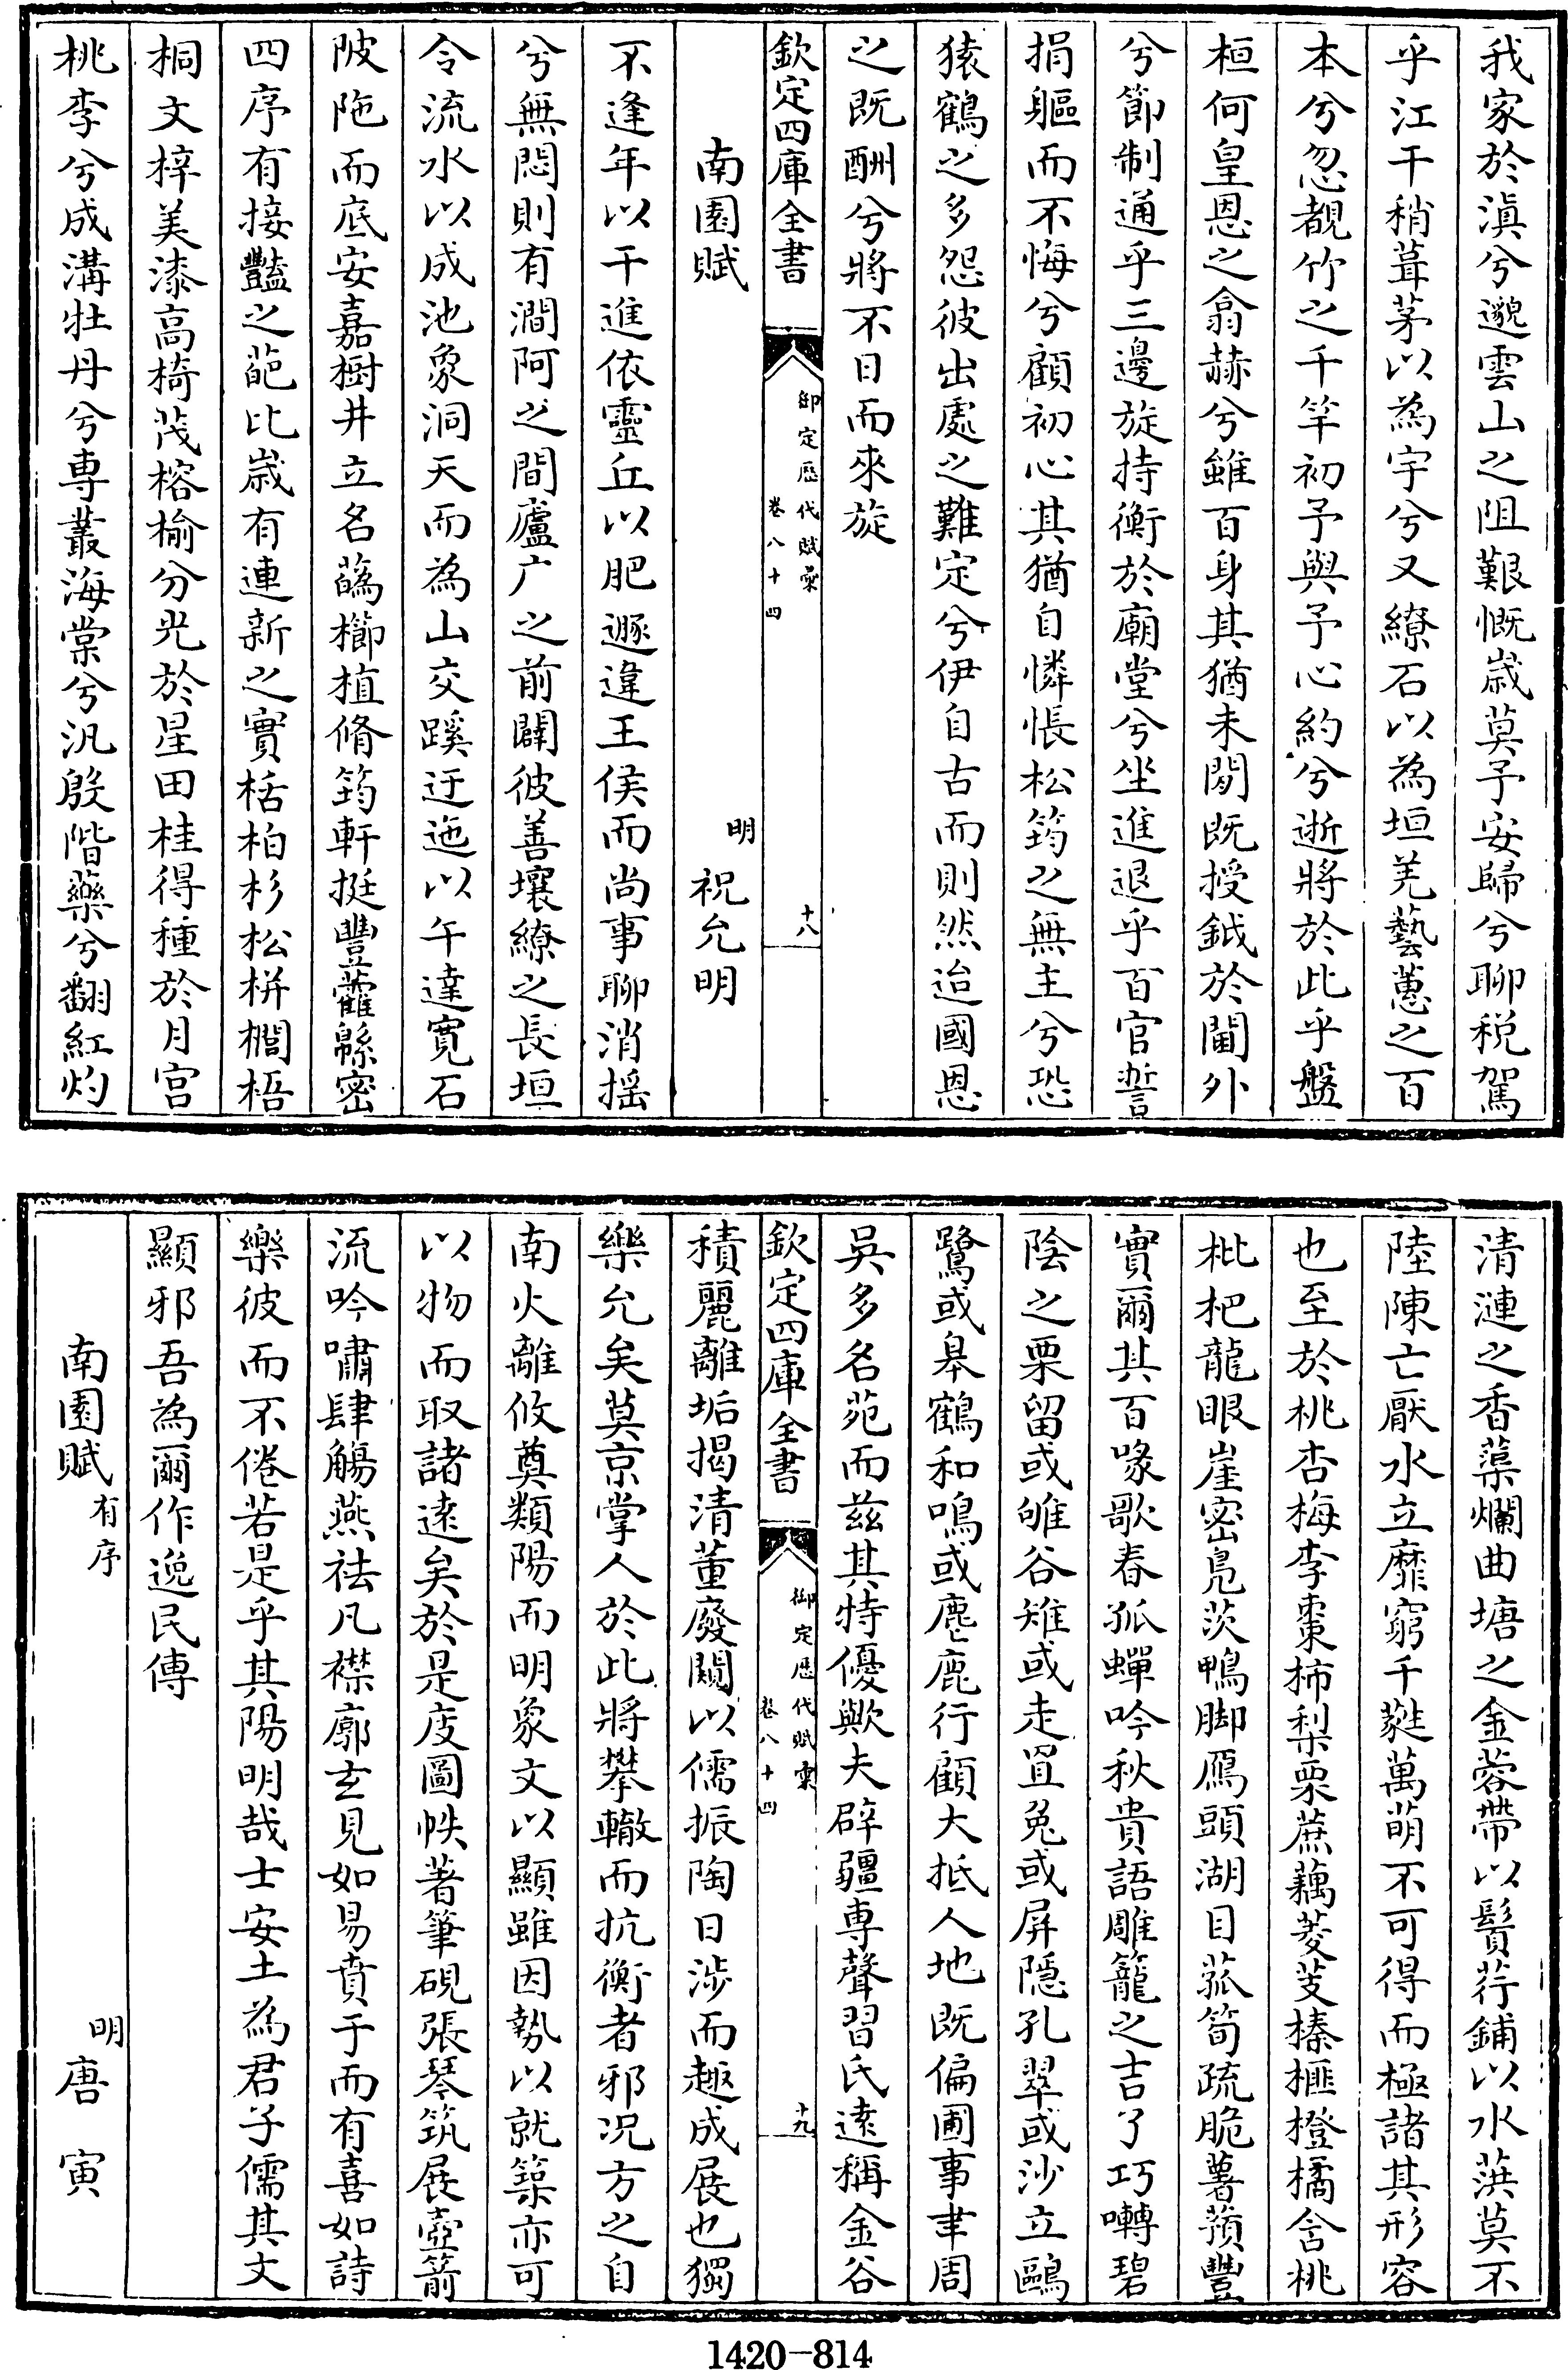 我家於滇兮邈雲山之阻艱慨歲莫予安歸兮聊稅駕
乎江干稍葺茅以為宇兮又繚石以為垣羌藝蕙之百
本兮忽覩竹之千竿初予與予心約兮逝將於此乎盤
桓何皇恩之翕赫兮雖百身其猶未閑既授鉞於閫外
兮節制通乎三邊旋持衡於廟堂兮坐進退乎百官誓
捐軀而不悔兮顧初心其猶自憐悵松筠之無主兮恐
猿鶴之多怨彼出處之難定兮伊自古而則然迨國恩
之既酬兮將不日而來旋
欽定四庫全書
御定歷代賦彙
卷八十四
十八
南園賦
明
祝允明
不逢年以干進依靈丘以肥遯違王侯而尚事聊消揺
兮無悶則有澗阿之間廬广之前闢彼善壤繚之長垣
令流水以成池象洞天而為山交蹊迂迤以午達寛石
陂陁而底安嘉樹井立名蘤櫛植脩筠軒挺豐藿緜密
四序有接豔之葩比歲有連新之實栝柏杉松栟櫚梧
桐文梓美漆高椅茂榕榆分光於星田桂得種於月宫
桃李兮成溝牡丹兮専叢海棠兮汎殷階藥兮翻紅灼
清漣之香蕖爛曲塘之金蓉帶以鬢荇鋪以水葓莫不
陸陳亡厭水立靡窮千蕤萬萌不可得而極諸其形容
也至於桃杏梅李棗柿梨栗蔗藕菱芰榛榧橙橘含桃
枇杷龍眼崖密鳬茨鴨脚鴈頭湖目菰筍疏脆薯蕷豐
實爾其百喙歌春孤蟬吟秋貴語雕籠之吉了巧囀碧
陰之栗留或雊谷雉或走罝兔或屏隠孔翠或沙立鷗
鷺或皋鶴和鳴或麀鹿行顧大抵人地既偏圃事聿周
吳多名苑而兹其特優歟夫辟疆専聲習氏逺稱金谷
欽定四庫全書
御定歷代賦彙
卷八十四
十九
積麗離垢揭清董廢闚以儒振陶日涉而趣成展也獨
樂允矣莫京掌人於此將攀轍而抗衡者邪況方之自
南火離攸奠類陽而明象文以顯雖因勢以就築亦可
以物而取諸逺矣於是庋圖帙著筆硯張琴筑展壺箭
流吟嘯肆觴燕祛凡襟廓玄見如易賁于而有喜如詩
樂彼而不倦若是乎其陽明哉士安土為君子儒其文
顯邪吾為爾作逸民傳
南園賦
有序
明
唐寅
1420—814